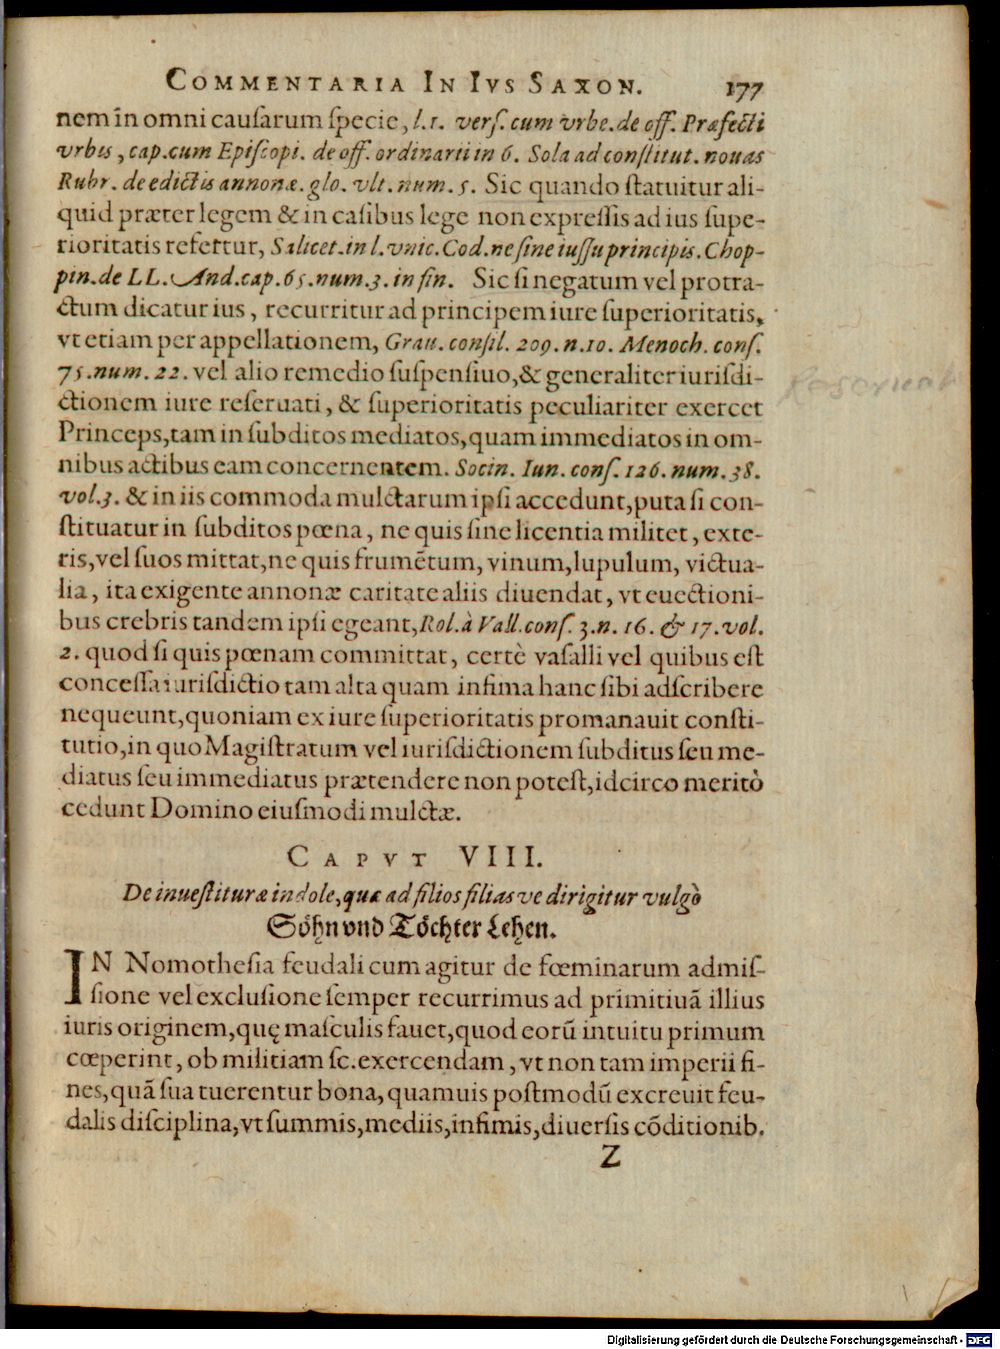 COMMENTARIA IN IVS SAXON. 177
nem in omni causarum specie, l.1. vers. cum vrbe. de off. Præfecti
vrbis, cap. cum Episcopi. de off. ordinarii in 6. Sola ad constitut. nouas
Rubr. de edictis annonæ. glo. vlt. num. 5. Sic quando statuitur ali-
quid præter legem & in casibus lege non expressis ad ius supe-
rioritatis refertur, Salicet. in l. vnic. Cod. ne sine iussu principis. Chop-
pin. de LL. And. cap. 65. num. 3. in fin. Sic si negatum vel protra-
ctum dicatur ius, recurritur ad principem iure superioritatis,
vt etiam per appellationem, Grau. consil. 209. n. 10. Menoch. cons.
75. num. 22. vel alio remedio suspensiuo, & generaliter iurisdi-
ctionem iure reseruati, & superioritatis peculiariter exercet
Princeps, tam in subditos mediatos, quam immediatos in om-
nibus actibus eam concernentem. Socin. Iun. cons. 126. num. 38.
vol. 3. & in iis commoda mulctarum ipsi accedunt, puta si con-
stituatur in subditos pœna, ne quis sine licentia militet, exte-
ris, vel suos mittat, ne quis frumētum, vinum, lupulum, victua-
lia, ita exigente annonæ caritate aliis diuendat, vt euectioni-
bus crebris tandem ipsi egeant, Rol. à Vall. cons. 3. n. 16. & 17. vol.
2. quod si quis pœnam committat, certè vasalli vel quibus est
concessa iurisdictio tam alta quam infima hanc sibi adscribere
nequeunt, quoniam ex iure superioritatis promanauit consti-
tutio, in quo Magistratum vel iurisdictionem subditus seu me-
diatus seu immediatus prætendere non potest, idcirco meritò
cedunt Domino eiusmodi mulctæ.
CAPVT VIII.
De inuestituræ indole, quæ ad filios filias ve dirigitur vulgò
Söhn vnd Töchter Lehen.
IN Nomothesia feudali cum agitur de fœminarum admis-
sione vel exclusione semper recurrimus ad primitiuā illius
iuris originem, quę masculis fauet, quod eorū intuitu primum
cœperint, ob militiam sc. exercendam, vt non tam imperii fi-
nes, quā sua tuerentur bona, quamuis postmodū excreuit feu-
dalis disciplina, vt summis, mediis, infimis, diuersis cōditionib.
Z
Digitalisierung gefördert durch die Deutsche Forschungsgemeinschaft - DFG